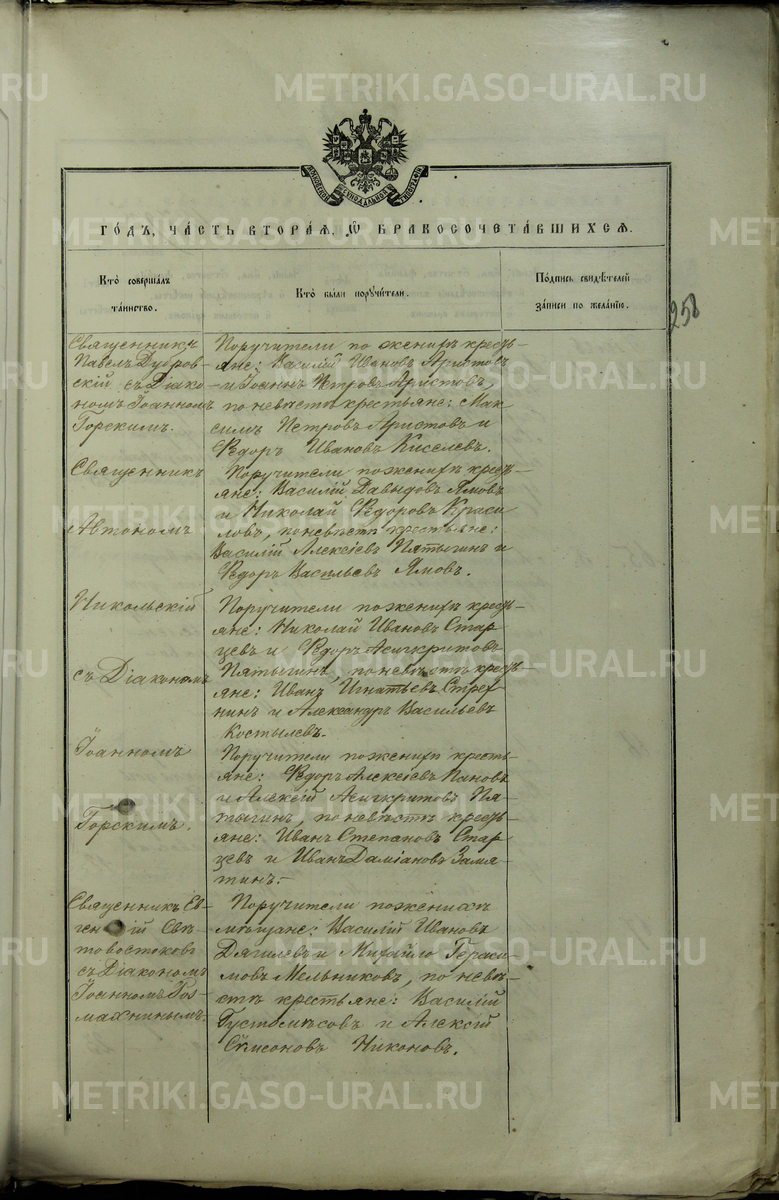 METRIKI.GASO-URAL.RU
МОСКОВСКОЙ СѴНОДАЛЬНОЙ ТИПОГРАФІИ
ГО́ДЪ, ЧА́СТЬ ВТОРА́Я, Ѽ БРАКОСОЧЕТА́ВШИХСЯ.
Кто̀ соверша́лъ
та́инство.
Кто̀ бы́ли порꙋчи́тели.
По́дпись свидѣ́телей
за́писи по жела́нію.
258
Священникъ
Павелъ Дубров-
скій съ Діако-
номъ Іоанномъ
Горскимъ.
Поручители по женихѣ кресть-
яне: Василій Ивановъ Аристовъ
и Іоаннъ Петровъ Аристовъ,
по невѣстѣ крестьяне: Мак
симъ Петровъ Аристовъ и
Ѳедоръ Ивановъ Киселевъ.
Священникъ
Автономъ
Поручители по женихѣ кресть-
яне: Василій Давыдовъ Ямовъ
и Николай Ѳедоровъ Краси
ловъ, по невѣстѣ крестьяне:
Василій Алексіевъ Пятыгинъ и
Ѳедоръ Васильевъ Ямовъ.
Никольскій
съ Діакономъ
Поручители по женихѣ кресть-
яне: Николай Ивановъ Стар
цевъ и Ѳедоръ Асигкритовъ
Пятыгинъ, по невѣстѣ кресть
яне: Иванъ Игнатьевъ
и Александръ Васильевъ
Костылевъ.
Іоанномъ
Горскимъ.
Поручители по женихѣ кресть-
яне: Ѳедоръ Алексіевъ Пановъ
и Алексій Асигкритовъ Пя-
тыгинъ, по невѣстѣ кресть-
яне: Иванъ Степановъ Стар
цевъ и Иванъ Даміановъ Замя-
тинъ.-
Священникъ Ев-
геній Свѣ-
товостоковъ
съ Діакономъ
Іоанномъ Роз
махнинымъ.
Поручители по женихѣ
мѣщане: Василій Ивановъ
Дягилевъ и Михайло Гераси
мовъ Мельниковъ, по невѣ-
стѣ крестьяне: Василій
Густомѣсовъ и Алексій
Сѵмеоновъ Никоновъ.